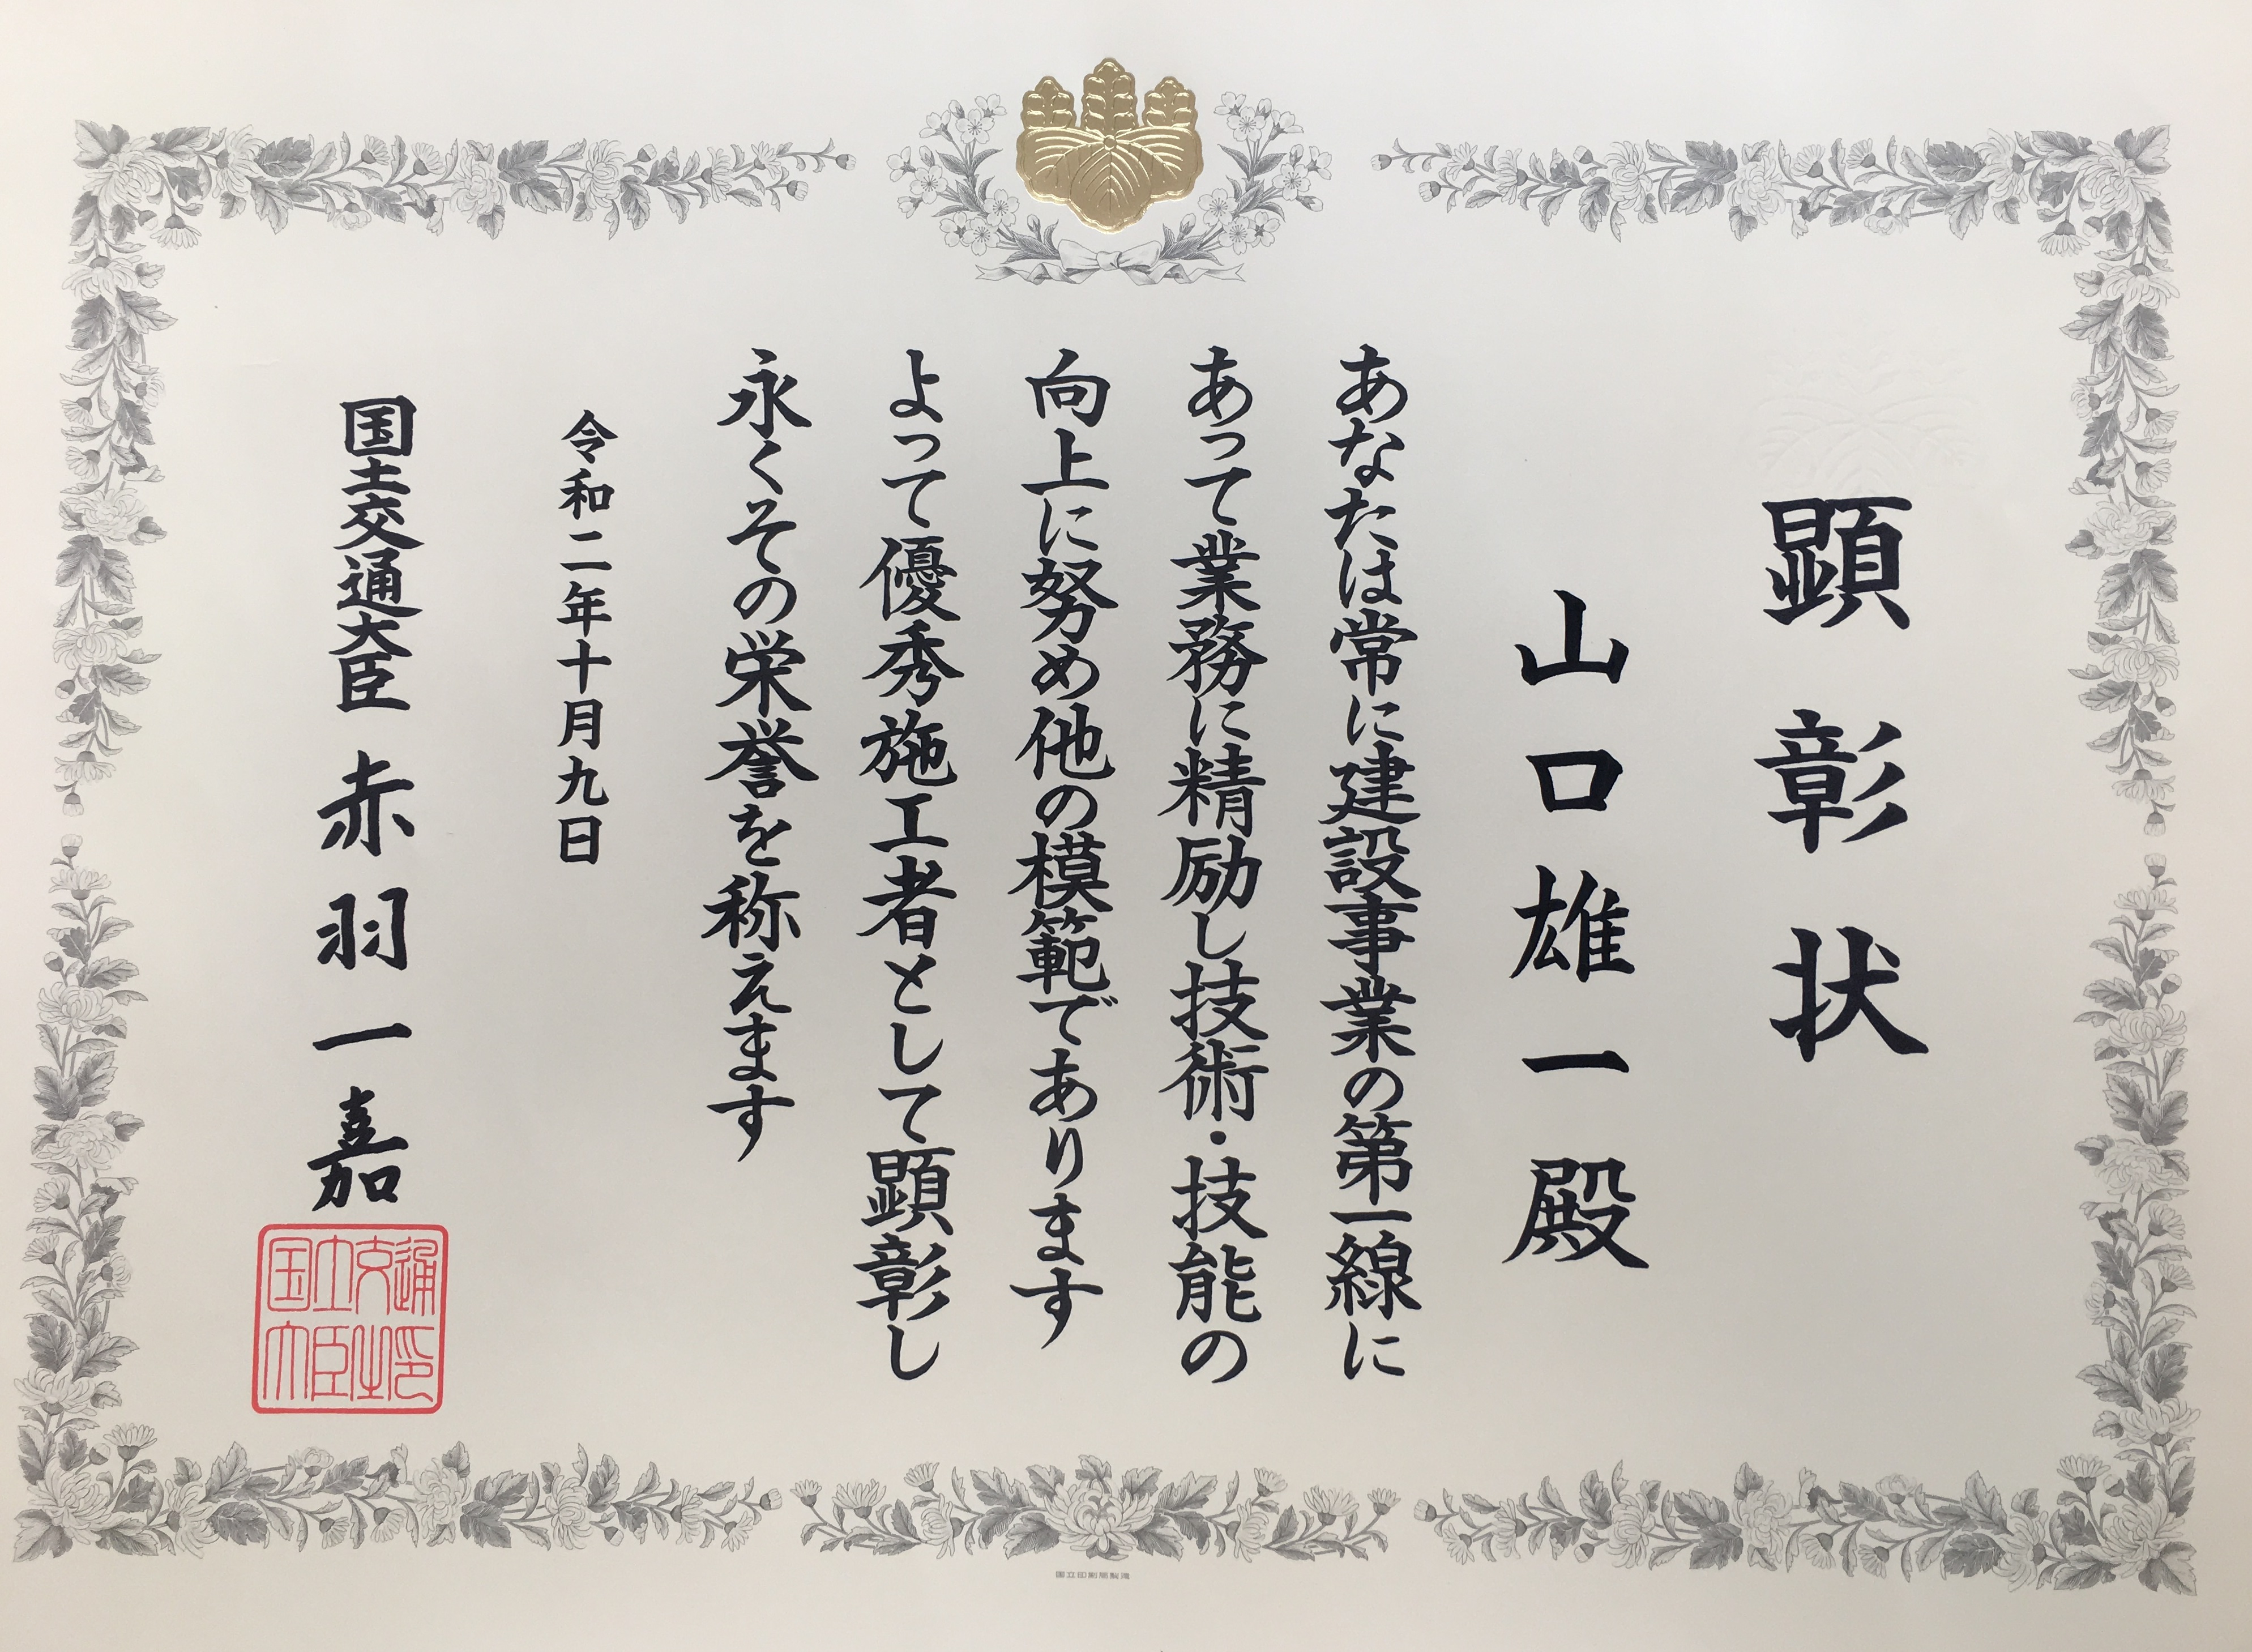 顕彰状
山口雄一殿
あなたは常に建設事業の第一線に
あって業務に精励し技術・技能の
向上に努め他の模範であります
よって優秀施工者として顕彰し
永くその栄誉を称えます
令和二年十月九日
国土交通大臣 赤羽一嘉
国土交通
大臣之印
国立印刷局製造